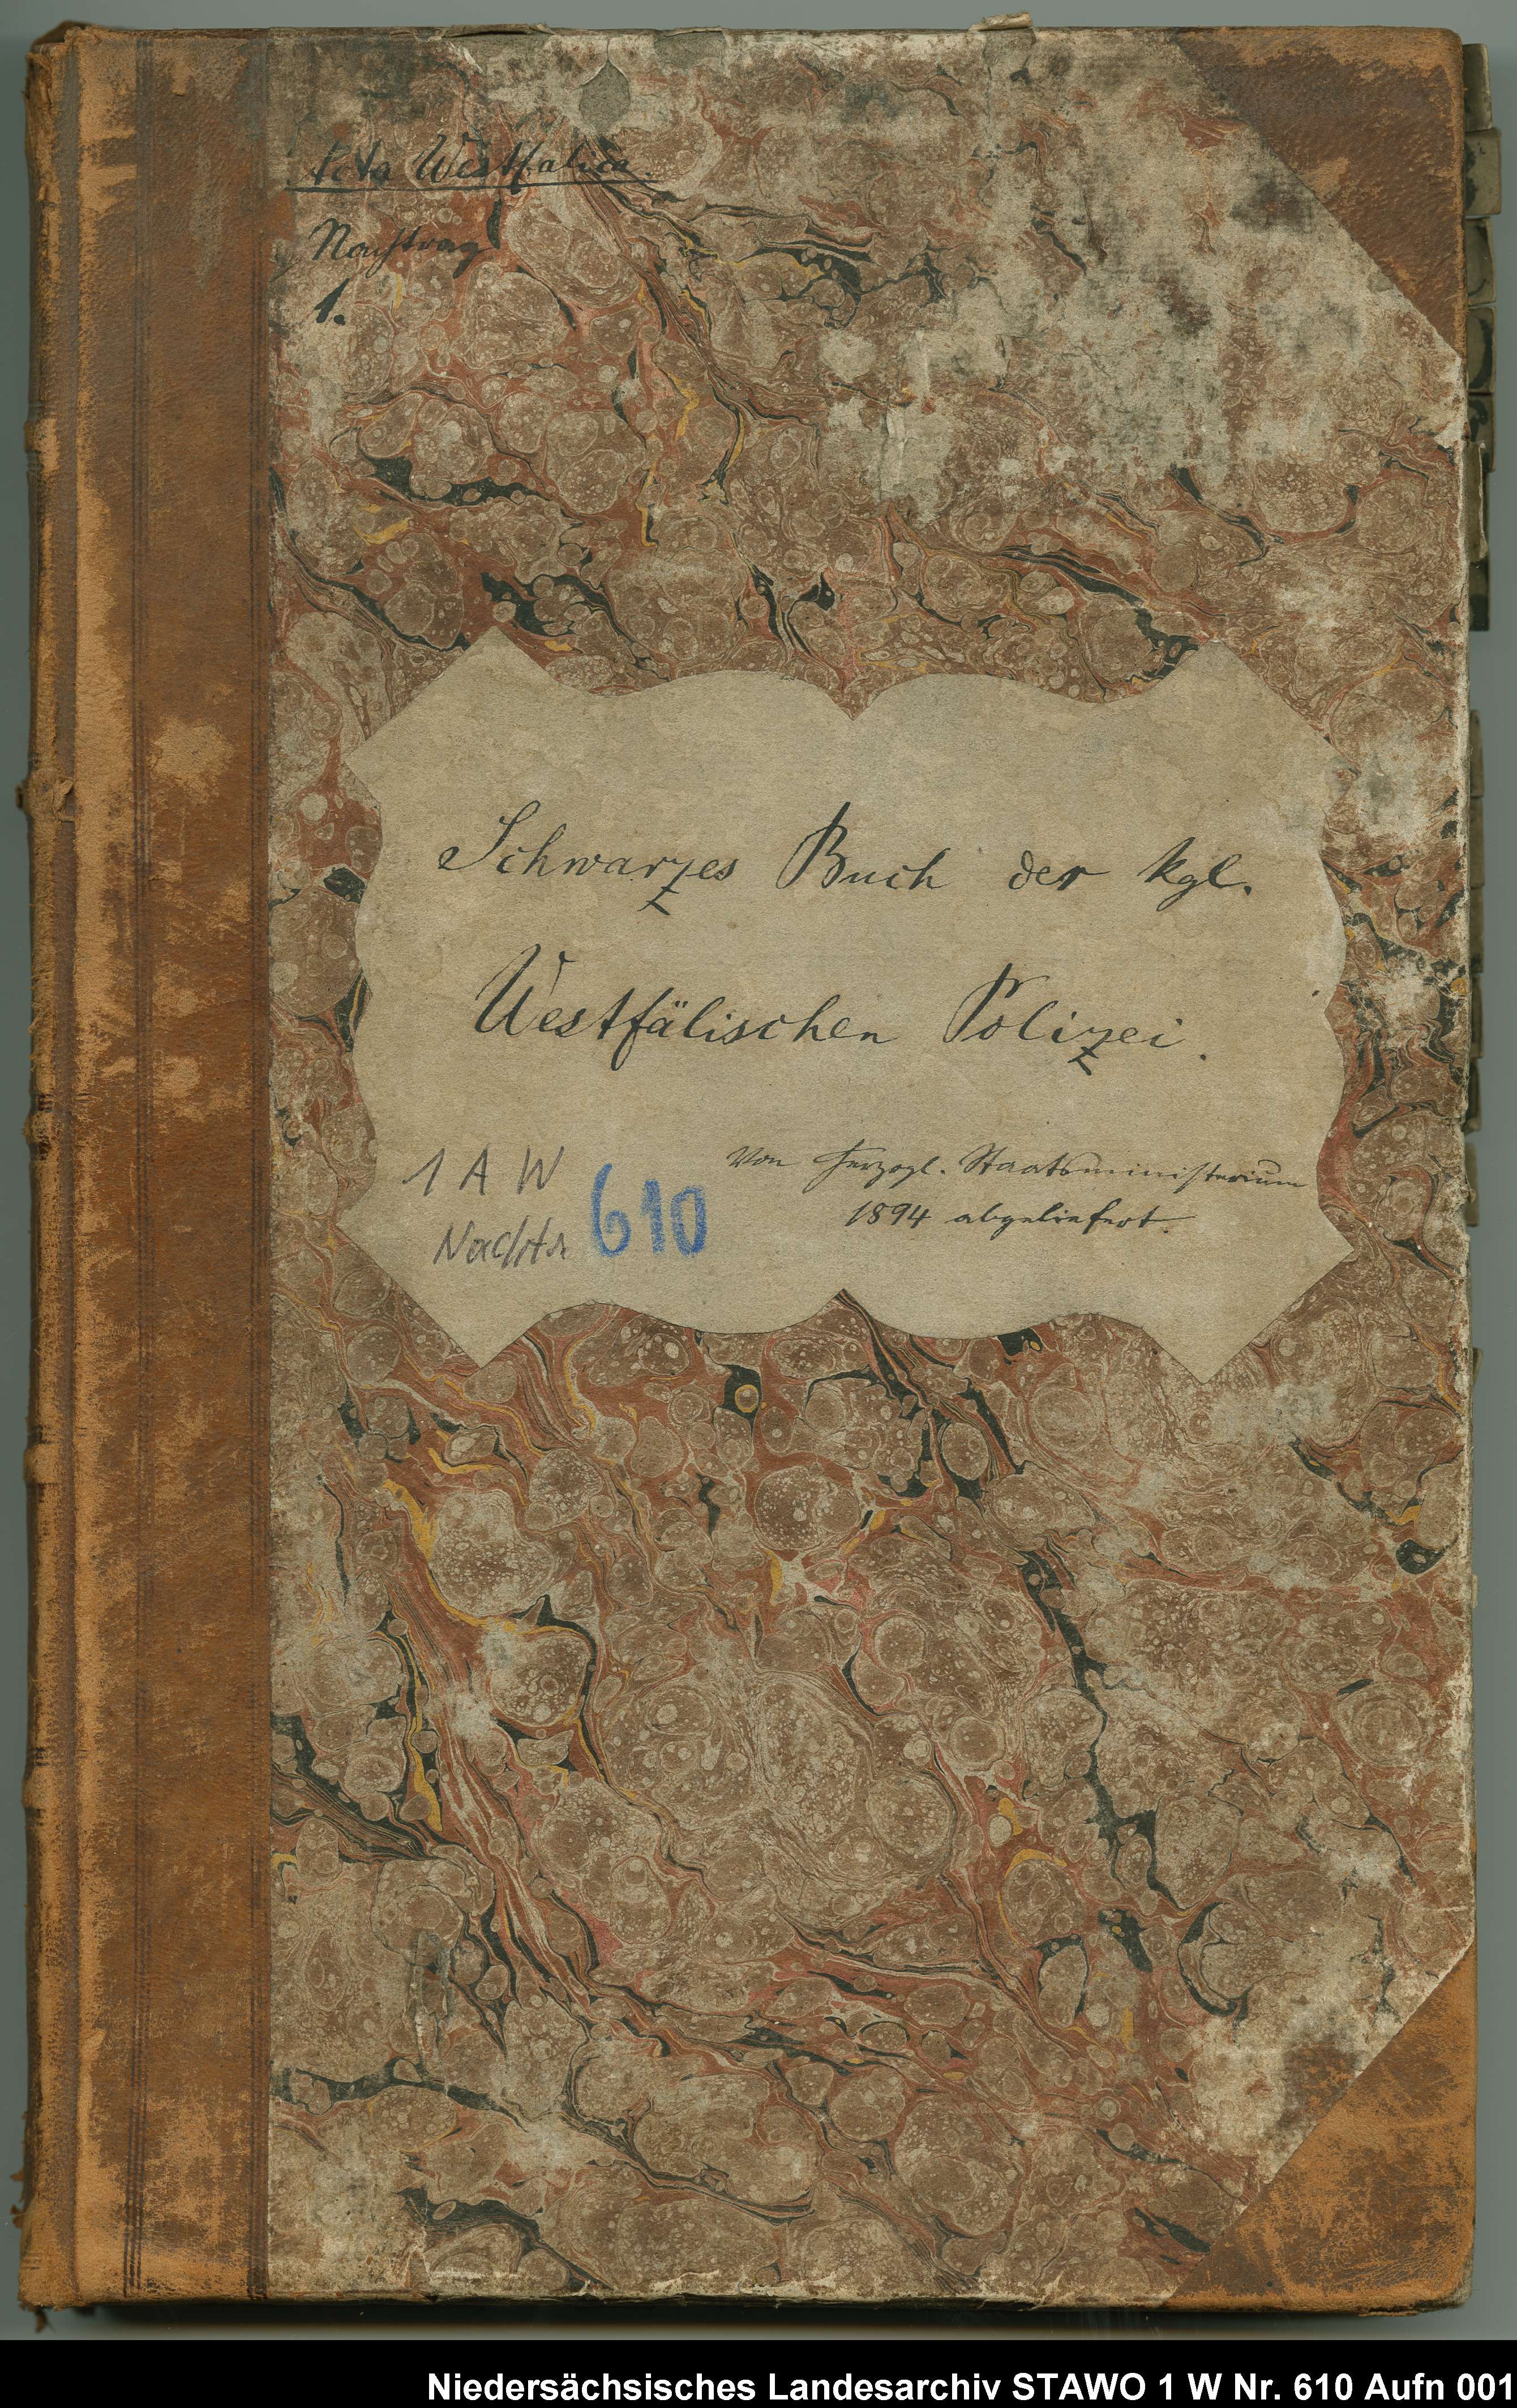 Acta Westfalica.
Nachtrag
1.
Schwarzes Buch der kgl.
Westfälischen Polizei.
Von Herzogl. Staatsministerium
1894 abgeliefert.
1 A W
Nachtr
610
Niedersächsisches Landesarchiv STAWO 1 W Nr. 610 Aufn 001